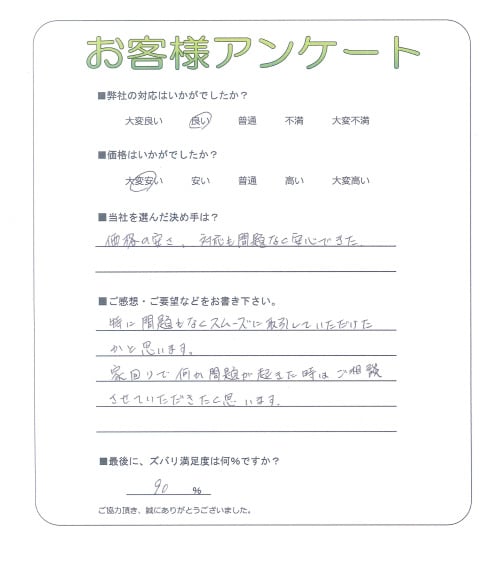 お客様アンケート
■弊社の対応はいかがでしたか？
大変良い 良い 普通 不満 大変不満
■価格はいかがでしたか？
大変安い 安い 普通 高い 大変高い
■当社を選んだ決め手は？
価格の安さ、対応も問題なく安心できた
■ご感想・ご要望などをお書き下さい。
特に問題もなくスムーズに取引していただけた
かと思います。
家回りで何か問題が起きた時はご相談
させていただきたく思います。
■最後に、ズバリ満足度は何%ですか？
90 %
ご協力頂き、誠にありがとうございました。